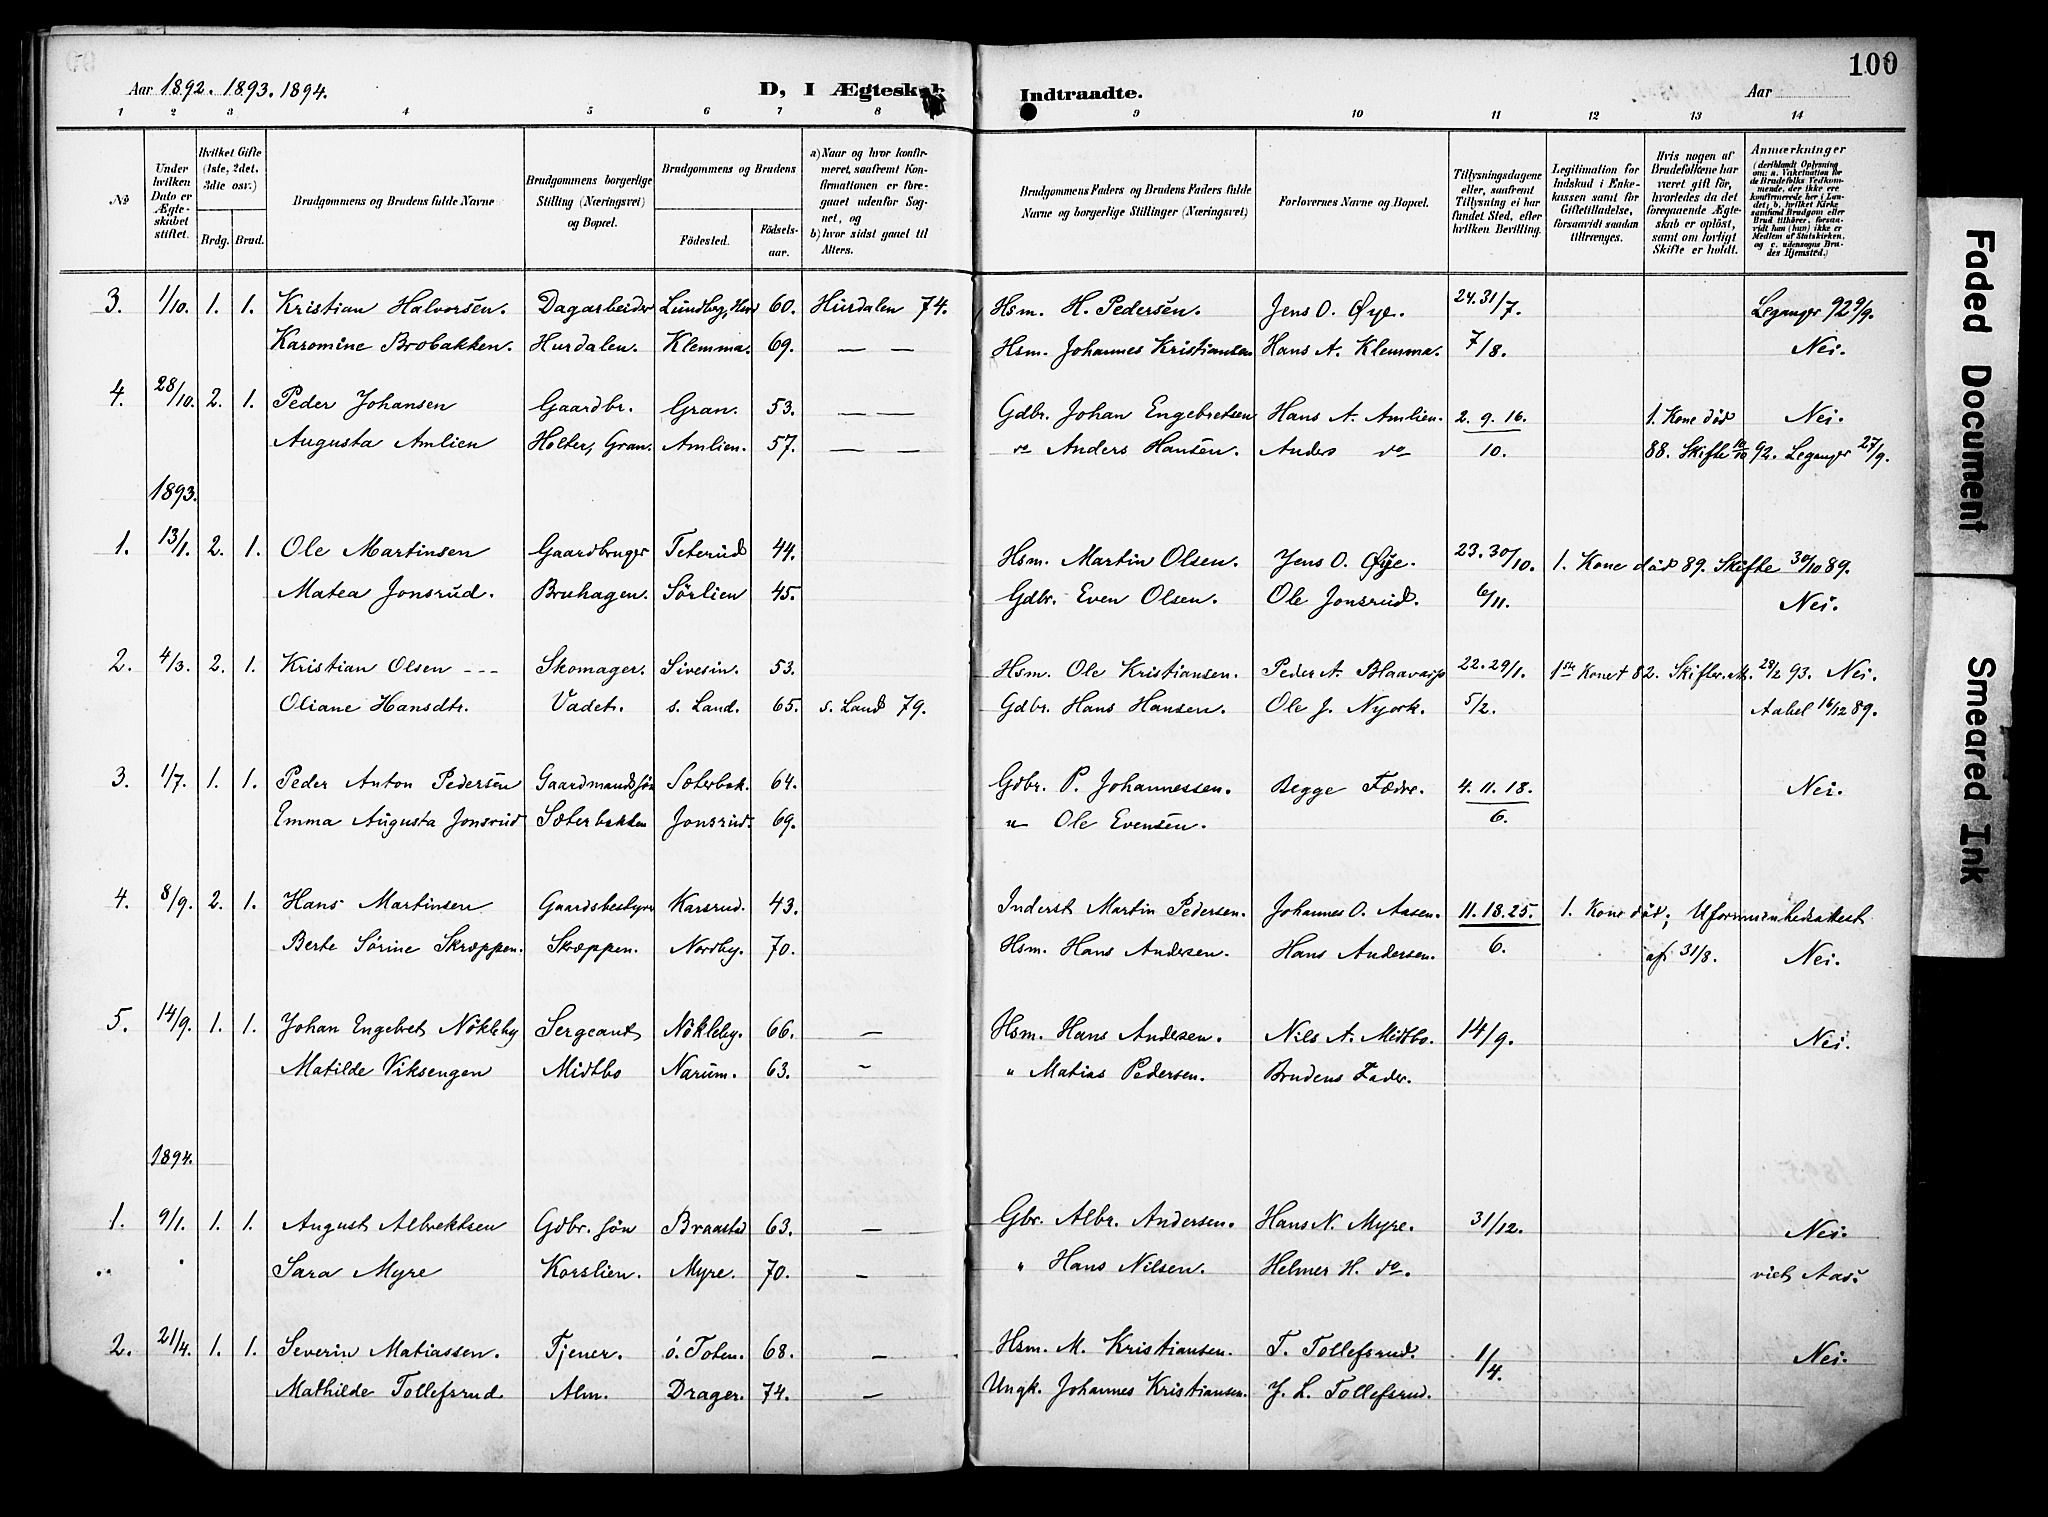 100
Aar 1892. 1893. 1894. D, I Ægteskab Indtraadte. Aar
1 2 3 4 5 6 7 8 9 10 11 12 13 14
No
Under hvilken Dato er Ægteskabet stiftet.
Hvilket Gifte (1ste, 2det, 3die osv.)
Brdg. Brud.
Brudgommens og Brudens fulde Navne
Brudgommens borgerlige Stilling (Næringsvei) og Bopæl.
Brudgommens og Brudens
Fødested. Fødselsaar.
a) Naar og hvor konfirmeret, saafremt Konfirmationen er foregaaet udenfor Sognet, og
b) hvor sidst gaaet til Alters.
Brudgommens Faders og Brudens Faders fulde Navne og borgerlige Stillinger (Næringsvei)
Forlovernes Navne og Bopæl.
Tillysningsdagene eller, saafremt Tillysning ei har fundet Sted, efter hvilken Bevilling.
Legitimation for Indskud i Enkekassen samt for Giftetilladelse, forsaavidt saadan tiltrænges.
Hvis nogen af Brudefolkene har været gift før, hvorledes da det foregaaende Ægteskab er opløst, samt om lovligt Skifte er holdt.
Anmærkninger (deriblandt Oplysning om: a. Vakcination for de Brudefolks Vedkommende, der ikke ere konfirmerede her i Landet; b. hvilket Kirkesamfund Brudgom eller Brud tilhører, forsaavidt han (hun) ikke er Medlem af Statskirken, og c. udensogns Brudes Hjemsted.)
3. 1/10. 1. 1. Kristian Halvorsen. Dagarbeider Lundbg, Hur 60. Hurdalen 74. Hsm. H. Pedersen. Jens O. Øye. 24. 31/7. Leganger 92 9/9.
Karomine Brobakken. Hurdalen. Klemma. 69. — — Hsm. Johannes Kristiansen Hans A. Klemma. 7/8. Nei.
4. 28/10. 2. 1. Peder Johansen Gaardbr. Gran. 53. — — Gdbr. Johan Engebretsen Hans A. Amlien. 2. 9. 16. 1. Kone død Nei.
Augusta Amlien Holter, Gran. Amlien. 57. — — do Anders Hansen. Anders do 10. 88. Skifte 10/10 92. Leganger 27/9.
1893.
1. 13/1. 2. 1. Ole Martinsen Gaardbruger Teterud 44. Hsm. Martin Olsen. Jens O. Øye. 23. 30/10. 1. Kone død 89. Skifte 30/10 89.
Matea Jonsrud. Bruhagen. Sørlien 45. Gdbr. Even Olsen. Ole Jonsrud. 6/11. Nei.
2. 4/3. 2. 1. Kristian Olsen --- Skomager. Sivesin. 53. Hsm. Ole Kristiansen. Peder A. 22. 29/1. 1ste Kone † 82. 28/2 93. Nei.
Oliane Hansdtr. Vadet. s. Land. 65. s. Land 79. Gdbr. Hans Hansen. Ole J. Nyork. 5/2. Aabel 16/12 89.
3. 1/7. 1. 1. Peder Anton Pedersen Gaardmandssøn Sæterbak. 64. Gdbr. P. Johannessen. Begge Fædre. 4. 11. 18. Nei.
Emma Augusta Jonsrud Sæterbakken Jonsrud. 69. " Ole Evensen. 6.
4. 8/9. 2. 1. Hans Martinsen Gaardsbestyrer Karsrud. 43. Inderst Martin Pedersen. Johannes O. Aasen. 11. 18. 25. 1. Kone død; Uformuenhedsattest
Berte Sørine Skræppen. Skræppen. Nordby. 70. Hsm. Hans Andersen. Hans Andersen. 6. af 31/8. Nei.
5. 14/9. 1. 1. Johan Engebret Nökleby Sergeant Nökleby. 66. — Hsm. Hans Andersen. Nils A. Midtbo. 14/9. Nei.
Matilde Viksengen Midtbo Narum. 63. — " Matias Pedersen. Brudens Fader.
1894.
1. 9/1. 1. 1. August Albrektsen Gdbr. søn Braastad 63. — Gbr. Albr. Andersen. Hans N. Myre. 31/12. Nei.
Sara Myre Korslien. Myre. 70. — " Hans Nilsen. Helmer H. do. viet Aas.
2. 21/4. 1. 1. Severin Matiassen. Tjener. ö. Toten. 68. — Hsm. M. Kristiansen. T. Tollefsrud. 1/4. Nei.
Mathilde Tollefsrud Alm. Drager. 74. — Ungk. Johannes Kristiansen. J. L. Tollefsrud.
Faded Document
Smeared Ink